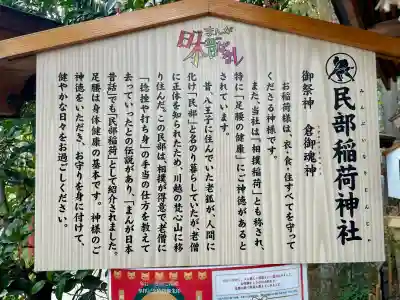 まんが
日本昔ばなし
民部稲荷神社
御祭神 倉御魂神
お稲荷様は、衣・食・住すべてを守って
くださる神様です。
また、当社は「相撲稲荷」とも称され、
特に「足腰の健康」にご神徳があると
されています。
昔、八王子に住んでいた老狐が、人間に
化け「民部」と名のり暮らしていたが、老僧
に正体を知られたため、川越の梵心山に移
り住んだ。この民部は、相撲が得意で老僧に
「捻挫や打ち身」の手当の仕方を教えて
去っていったとの伝説があり、「まんが日本
昔話」でも「民部稲荷」として紹介されました。
足腰は身体健康の基本です。神様のご
神徳をいただき、お守りを身に付けて、
健やかな日々をお過ごしください。